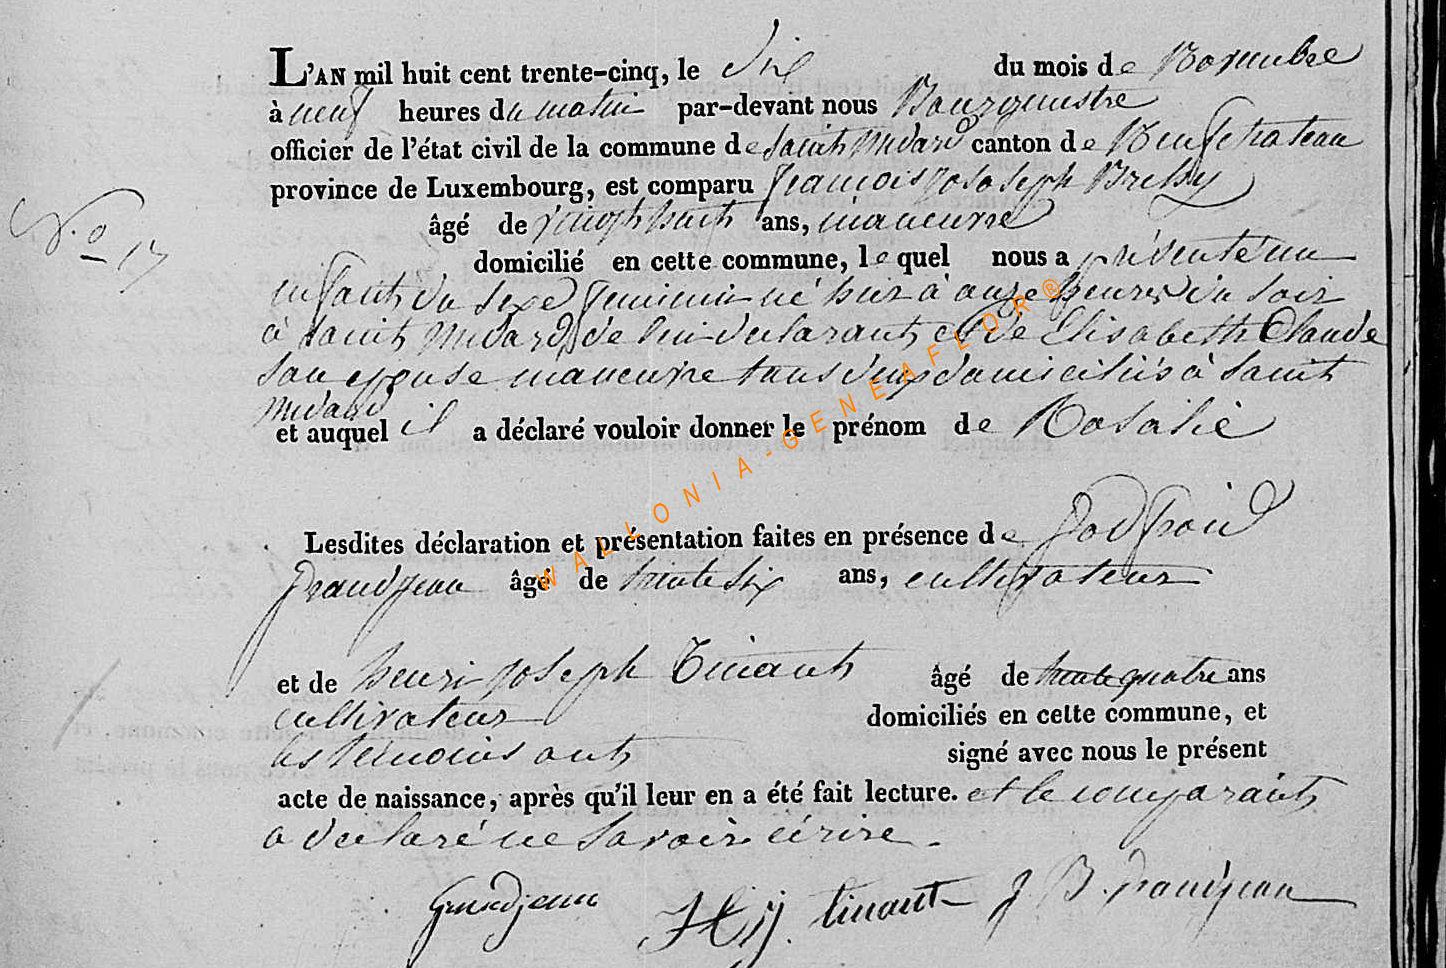 L'AN mil huit cent trente-cinq, le six du mois de Novembre
à neuf heures du matin par-devant nous Bourguestre
officier de l'état civil de la commune de Saint Medard canton de Neufchateau
province de Luxembourg, est comparu francois joseph
N.o 17
âgé de vingt huit ans, maneuvre
domicilié en cette commune, lequel nous a présenté un
enfant du sexe feminin né hier à onze heures du soir
à Saint Medard de lui declarant et de Elisabeth Claude
son epouse maneuvre tous deux domiciliés à Saint
Medard
et auquel il a déclaré vouloir donner le prénom de Rosalie
Lesdites déclaration et présentation faites en présence de Godfroid
Grandjean âgé de trente six ans, cultivateur
et de henri joseph Tinant âgé de trente quatre ans
cultivateur domiciliés en cette commune, et
les temoins ont signé avec nous le présent
acte de naissance, après qu'il leur en a été fait lecture. et le comparant
a declaré ne savoir écrire.
Grandjean H. J. tinant J. B. Grandjean
WALLONIA-GENEAFLOR®